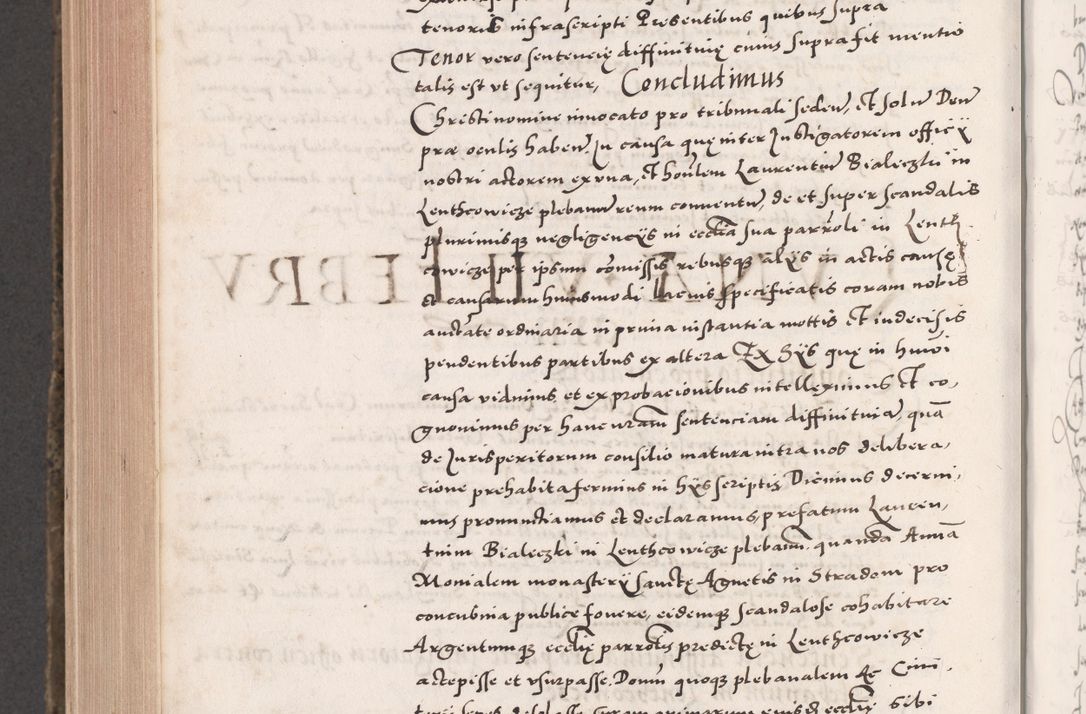 tenoris infrascripti Presentibus quibus supra
Tenor vero sentencię diffinitiuię cuius supra fit mentio
talis est vt sequitur, Concludimus
Christi nomine inuocato pro tribunali seden, et solu Deu
præ oculis haben, In causa quę inter Instigatorem officÿ
nostri actorem ex vna, et honlem Laurentiu Bialeczki in
Lenthcowicze plebanu reum conuentu, de et super scandalis
plurimisque negligencÿs in ecclia sua parroli in Lenth
cowicze per ipsum comissis rebusque alÿs in actis causę
et causarum huiusmodi lacius specificatis coram nobis
auctate ordinaria in prima instantia mottis et indecisis
pendentibus partibus ex altera Ex hÿs quę in huioi
causa vidimus et ex probacionibus intelleximus et co,
gnouimus per hanc nram sentenciam diffinitiua, qua
de Jurisperitorum consilio matura intra nos delibera,
cione prehabita ferimus in hÿs scriptis Dicimus decerni,
mus pronunctiamus et declaramus, prefatum Lauren,
tium Bialeczki in Lenthcowicze plebanu, quanda Anna
Monialem monasterÿ Sanctę Agnetis in Stradom pro
concubina publice fouere, eidemque scandalose cohabitare
Argentumque ecclię parrolis predictę in Lenthcowicze
accepisse et vsurpasse, Domu quoque plebanalem
curam animarum ecclię sibi